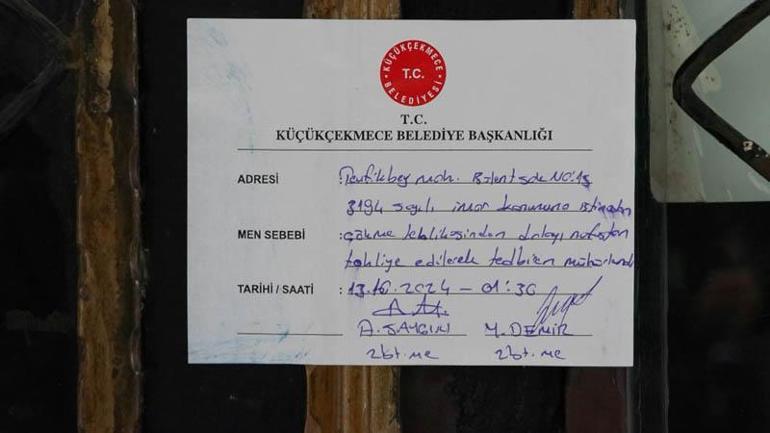 KÜÇÜKÇEKMECE BELEDİYESİ
T.C.
T.C.
KÜÇÜKÇEKMECE BELEDİYE BAŞKANLIĞI
ADRESİ : Tevfikbey Mah. Bülent Sok NO:15
3194 sayılı imar kanununa istinaden
MEN SEBEBİ : çökme tehlikesinden dolayı nufustan
tahliye edilerek tedbiren mühürlendi
TARİHİ / SAATİ : 13.10.2024 - 01:30
A. SAYGILI Y. DEMİR
zbt. me zbt. me